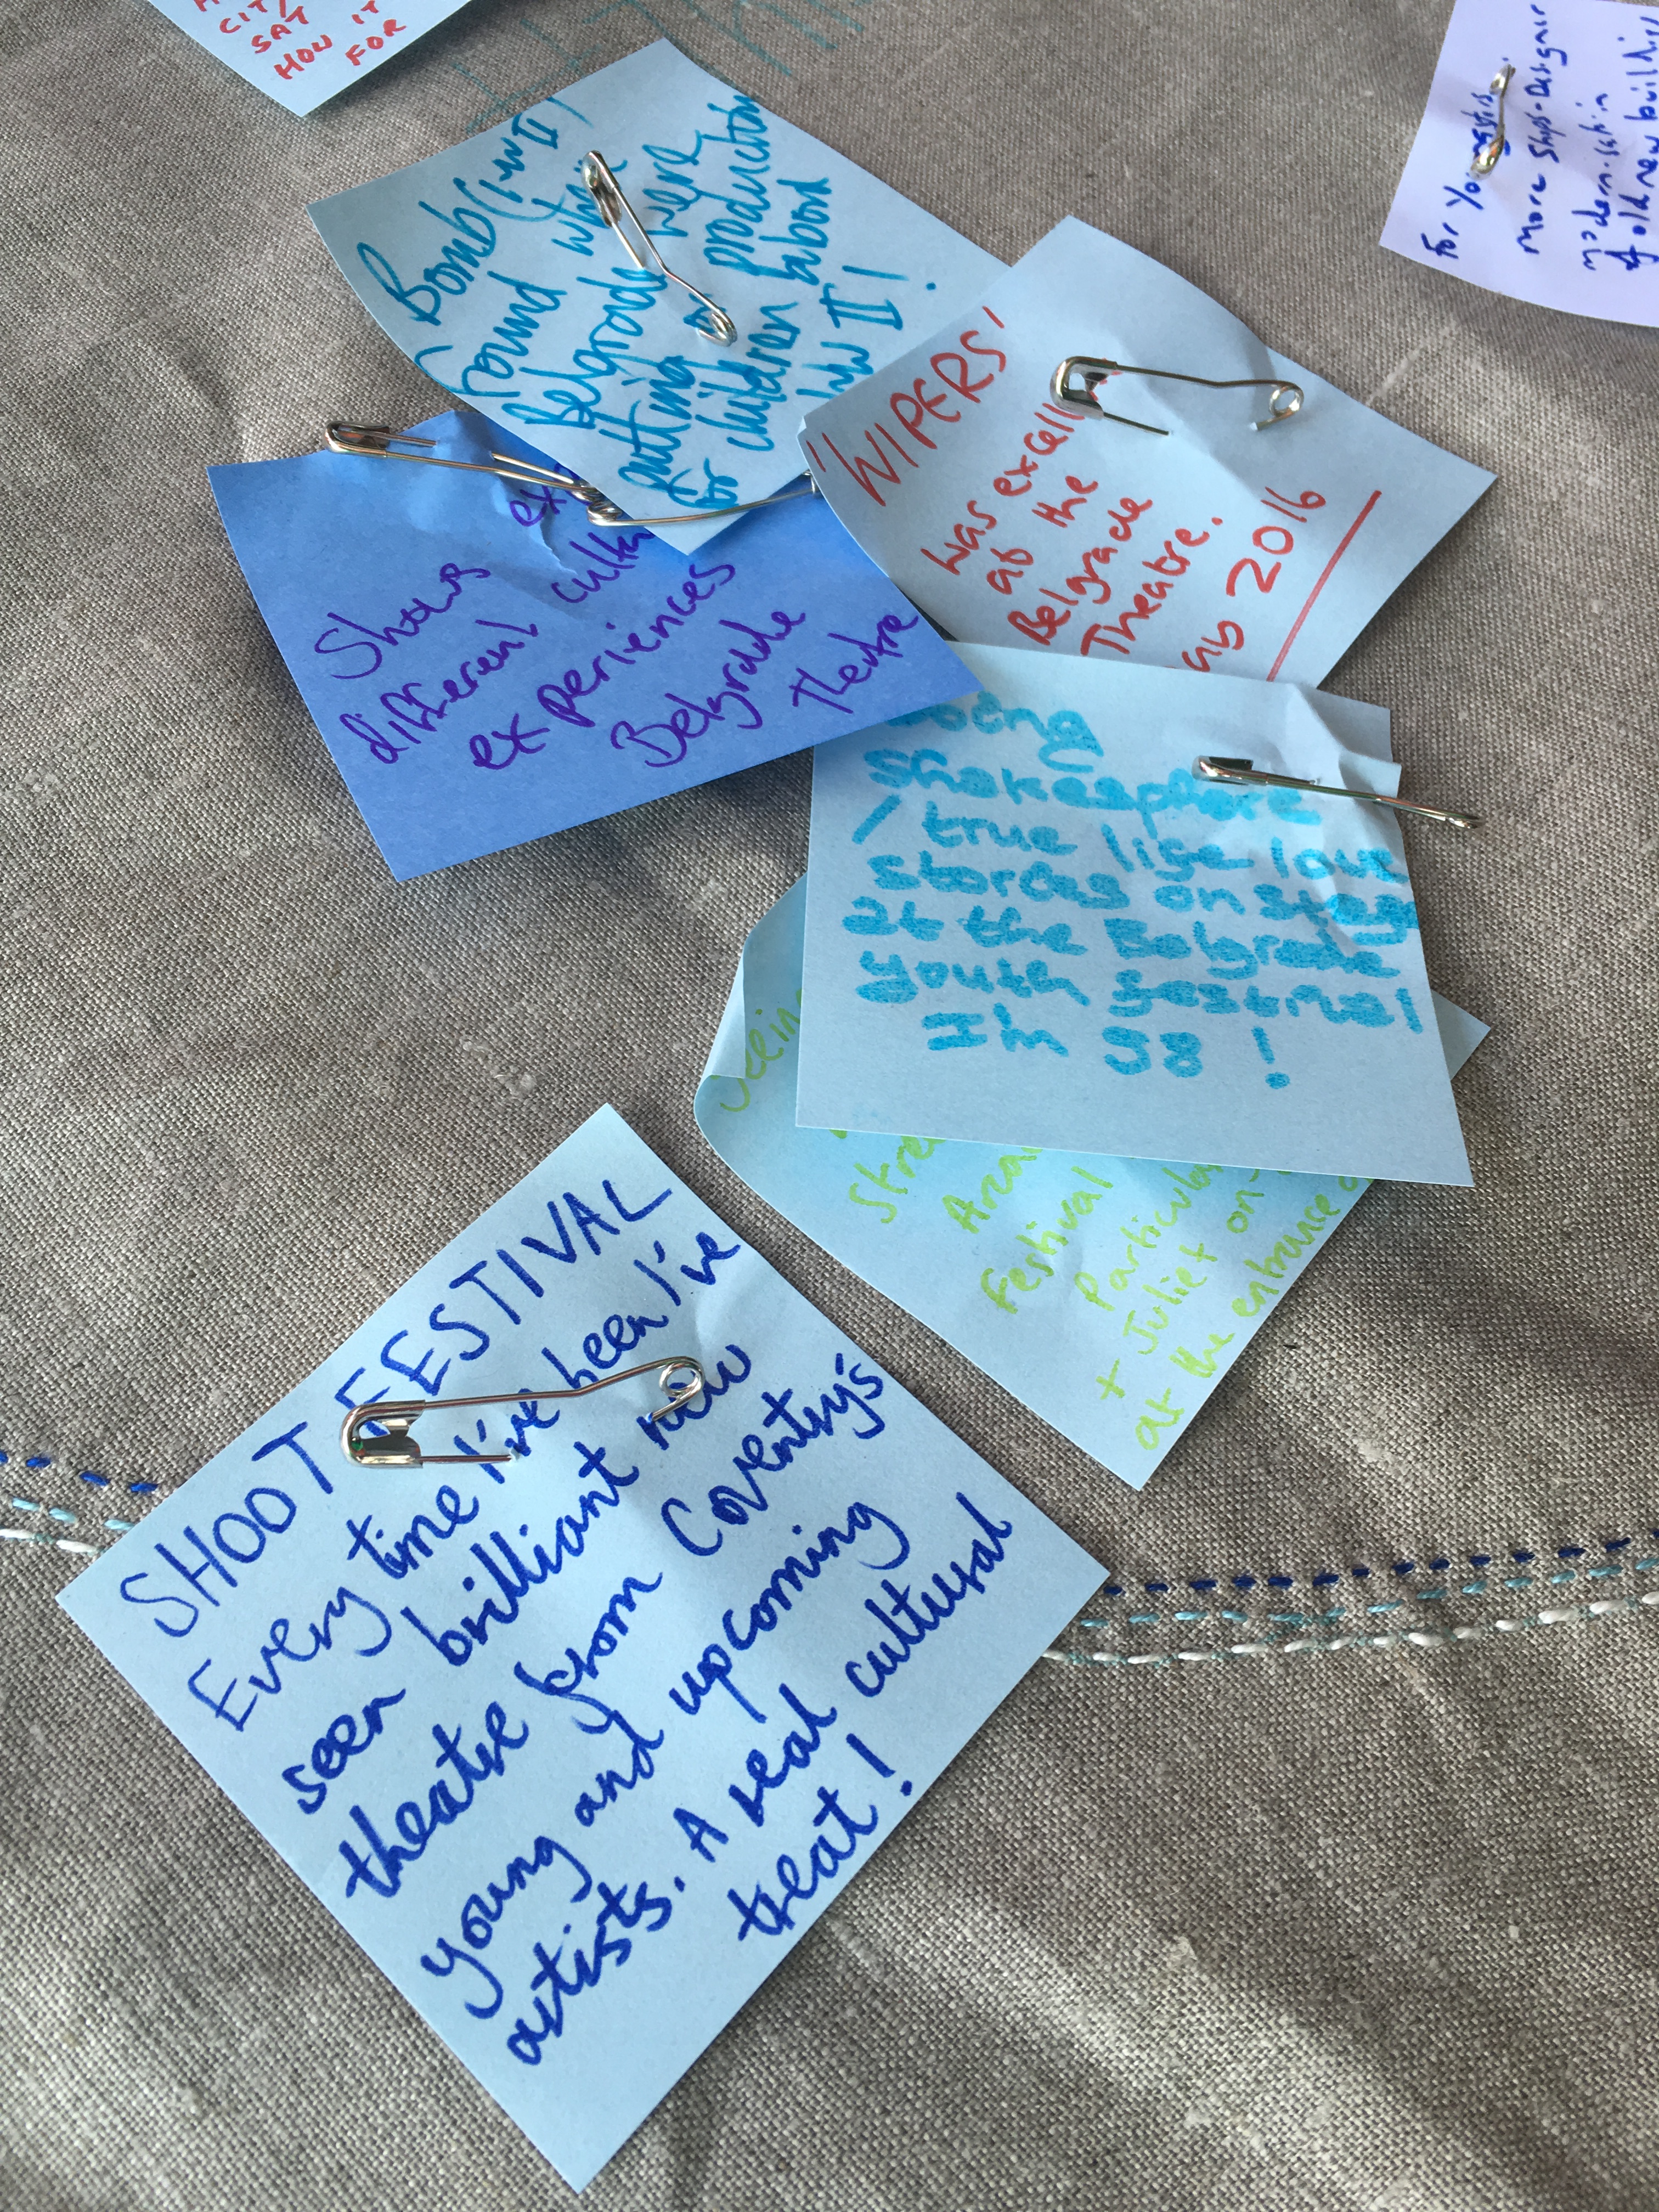 CITY
SAT IT
HOW FOR
For
more shops - Designer
modern-satin
old new
Bomb (WW II)
found when
Belgrade were
putting on production
for children about
WW II!
'WIPERS'
was
at the
Belgrade
Theatre.
2016
Shows
different
experiences
Belgrade
Theatre
Shakesphere
/ true life love
storeys on stage
at the Belgrade
youth festival
I'm 8!
Seeing
Festival
+ Juliet on-
at the entrance
SHOOT FESTIVAL
Every time I've been I've
seen brilliant new
theatre from Coventry's
young and upcoming
artists. A real cultural
treat!